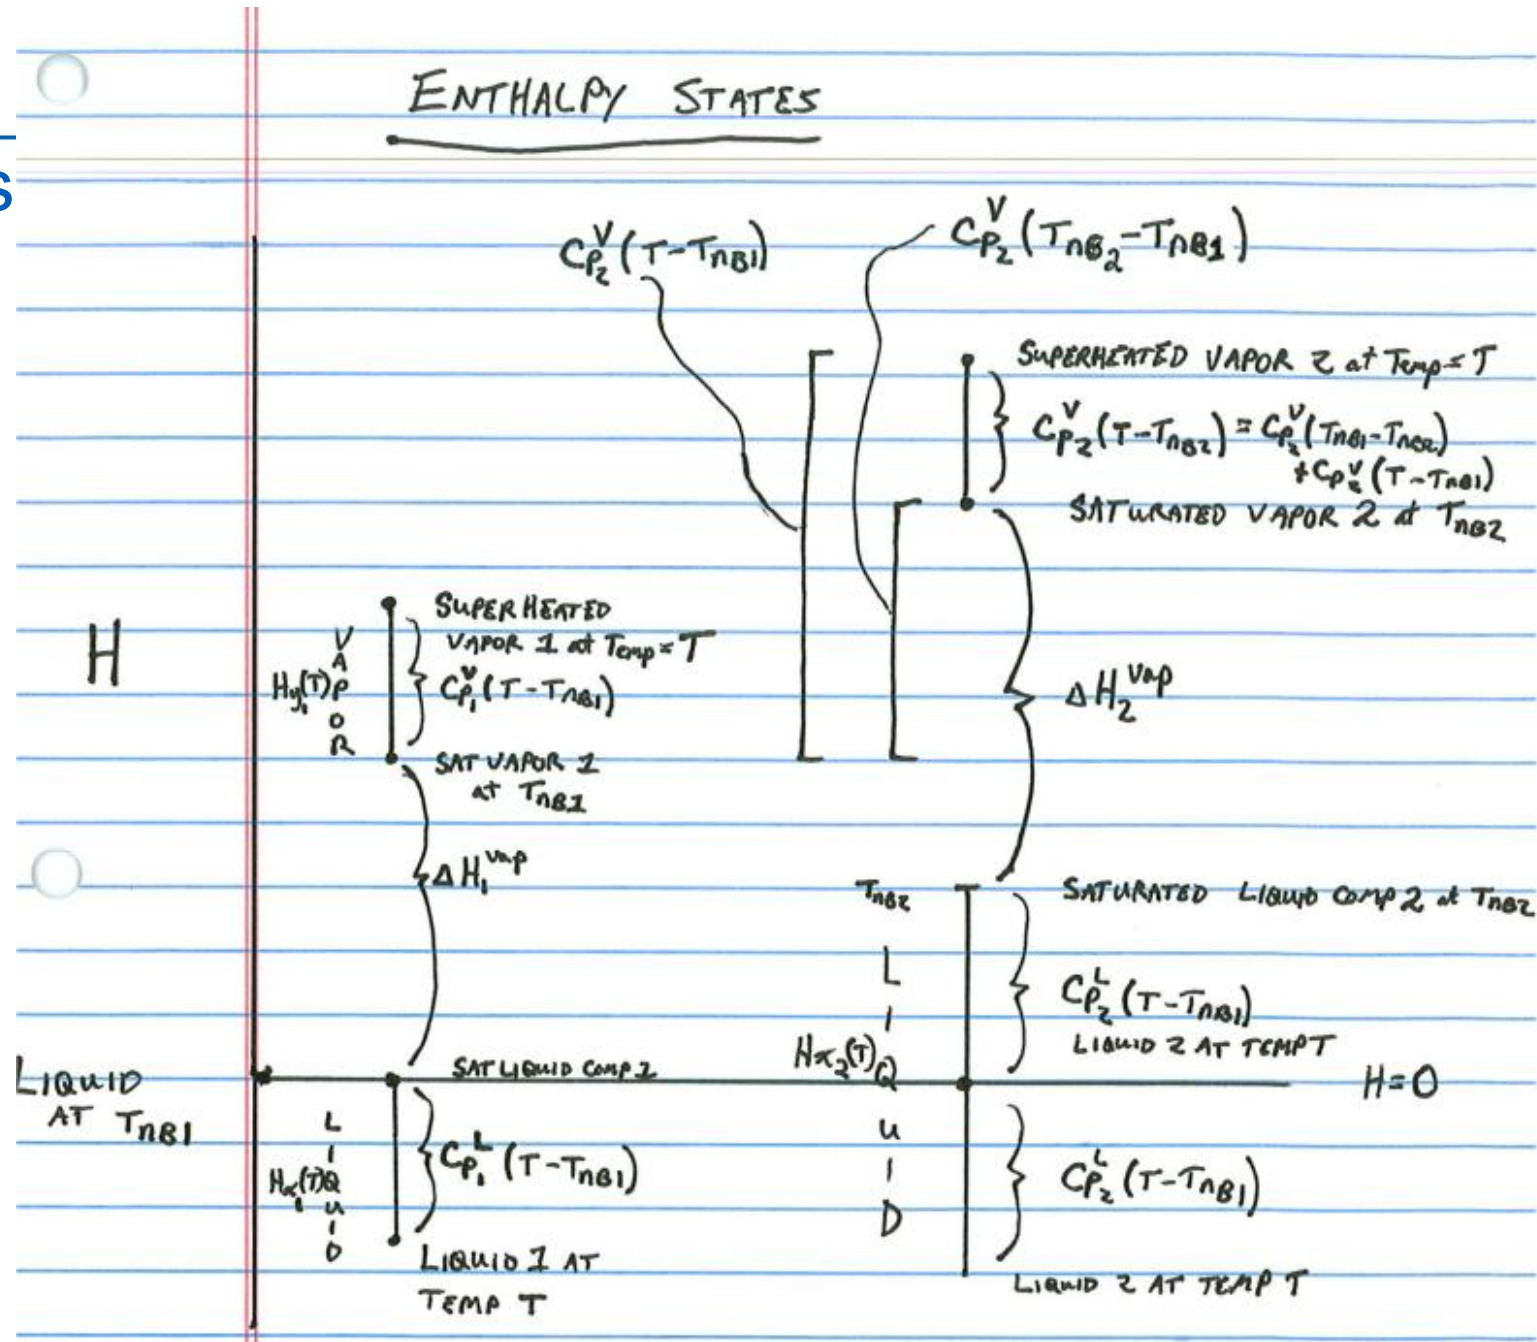 ENTHALPY STATES
S
C_{P2}^V (T-T_{nB1})
C_{P2}^V (T_{nB2}-T_{nB1})
SUPERHEATED VAPOR 2 at Temp = T
C_{P2}^V (T-T_{nB2}) = C_{P2}^V (T_{nB1}-T_{nB2})
+ C_{P2}^V (T-T_{nB1})
SATURATED VAPOR 2 at T_{nB2}
H
VAPOR
H_{y1}(T)
SUPERHEATED
VAPOR 1 at Temp = T
C_{P1}^V (T-T_{nB1})
SAT VAPOR 1
at T_{nB1}
ΔH_2^{vap}
ΔH_1^{vap}
T_{nB2}
SATURATED LIQUID COMP 2 at T_{nB2}
LIQUID
H_{x2}(T)
C_{P2}^L (T-T_{nB1})
LIQUID 2 AT TEMP T
LIQUID
AT T_{nB1}
SAT LIQUID COMP 1
H=0
LIQUID
H_{x1}(T)
C_{P1}^L (T-T_{nB1})
C_{P2}^L (T-T_{nB1})
LIQUID 1 AT
TEMP T
LIQUID 2 AT TEMP T